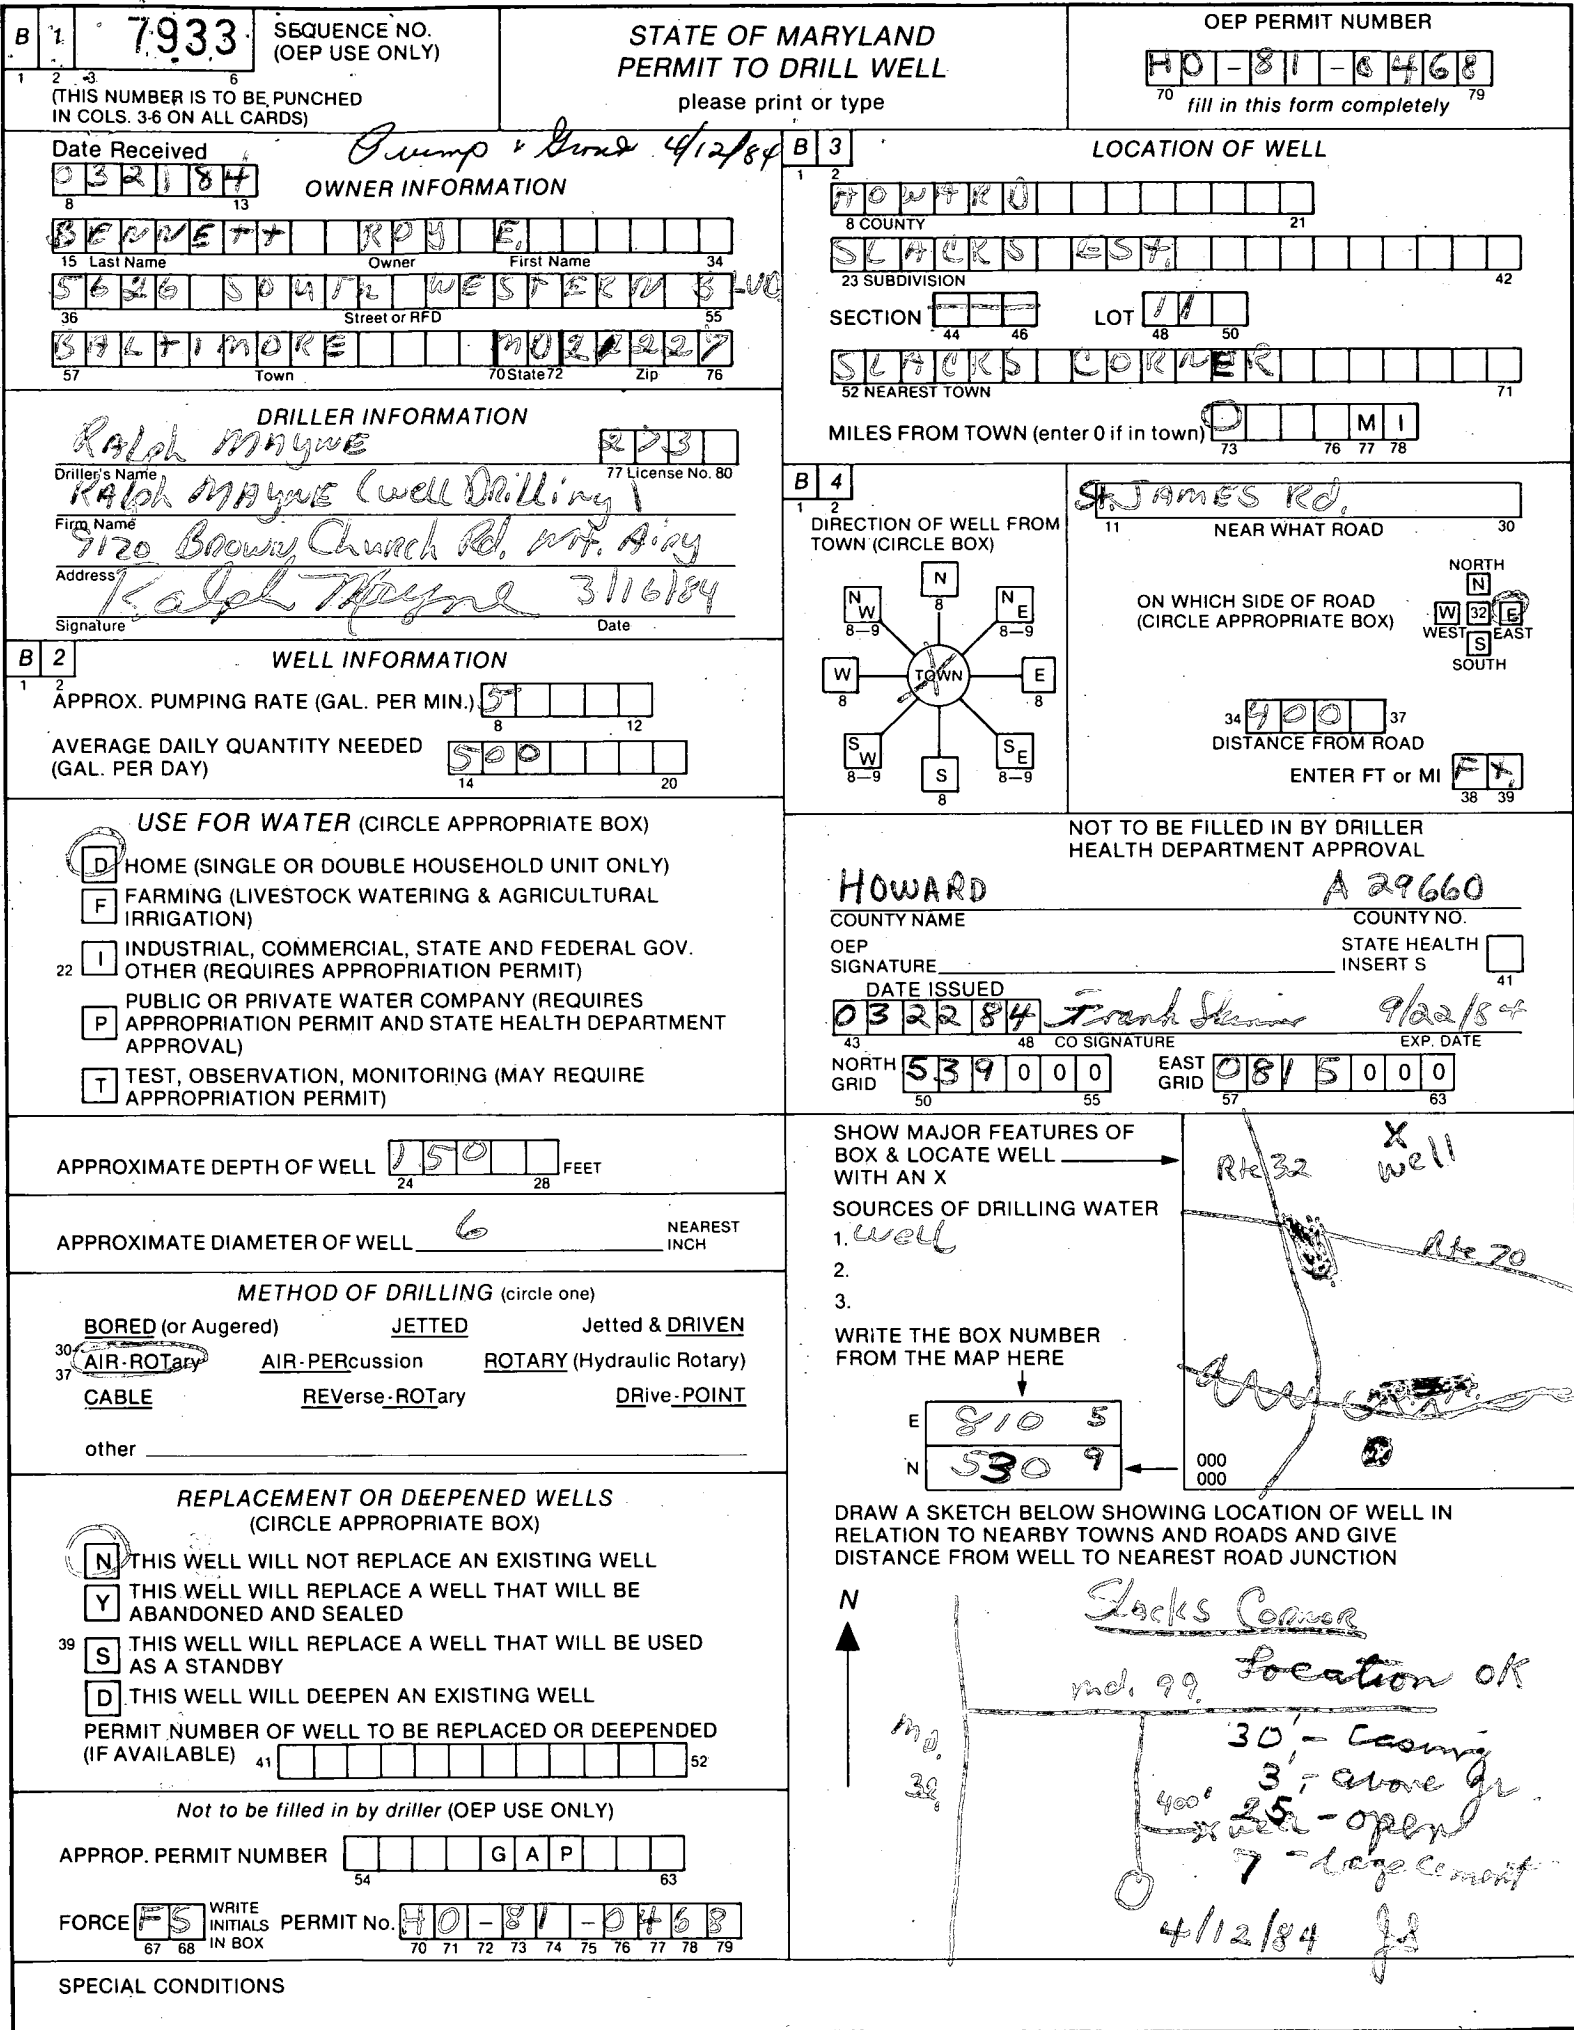 B 1 7933 SEQUENCE NO. (OEP USE ONLY)
1 2 3 6
(THIS NUMBER IS TO BE PUNCHED IN COLS. 3-6 ON ALL CARDS)
STATE OF MARYLAND
PERMIT TO DRILL WELL
please print or type
OEP PERMIT NUMBER
HO-81-0468
70 79
fill in this form completely
Date Received
032184
8 13
4/12/84
OWNER INFORMATION
BENNETT ROY E.
15 Last Name Owner First Name 34
5626 SOUTH WESTERN BLVD
36 Street or RFD 55
BALTIMORE MD 21227
57 Town 70 State 72 Zip 76
DRILLER INFORMATION
RALph MAYNE 273
Driller's Name 77 License No. 80
RALph MAYNE (well Drilling)
Firm Name
9120 Brown Church Rd. Mt. Airy
Address
Ralph Mayne 3/16/84
Signature Date
B 2 WELL INFORMATION
1 2
APPROX. PUMPING RATE (GAL. PER MIN.) 5
8 12
AVERAGE DAILY QUANTITY NEEDED
(GAL. PER DAY) 500
14 20
USE FOR WATER (CIRCLE APPROPRIATE BOX)
D HOME (SINGLE OR DOUBLE HOUSEHOLD UNIT ONLY)
F FARMING (LIVESTOCK WATERING & AGRICULTURAL
IRRIGATION)
22 I INDUSTRIAL, COMMERCIAL, STATE AND FEDERAL GOV.
OTHER (REQUIRES APPROPRIATION PERMIT)
P PUBLIC OR PRIVATE WATER COMPANY (REQUIRES
APPROPRIATION PERMIT AND STATE HEALTH DEPARTMENT
APPROVAL)
T TEST, OBSERVATION, MONITORING (MAY REQUIRE
APPROPRIATION PERMIT)
APPROXIMATE DEPTH OF WELL 150 FEET
24 28
APPROXIMATE DIAMETER OF WELL 6 NEAREST INCH
METHOD OF DRILLING (circle one)
BORED (or Augered) JETTED Jetted & DRIVEN
30 37 AIR-ROTary AIR-PERcussion ROTARY (Hydraulic Rotary)
CABLE REVerse-ROTary DRive-POINT
other
REPLACEMENT OR DEEPENED WELLS
(CIRCLE APPROPRIATE BOX)
N THIS WELL WILL NOT REPLACE AN EXISTING WELL
Y THIS WELL WILL REPLACE A WELL THAT WILL BE
ABANDONED AND SEALED
39 S THIS WELL WILL REPLACE A WELL THAT WILL BE USED
AS A STANDBY
D THIS WELL WILL DEEPEN AN EXISTING WELL
PERMIT NUMBER OF WELL TO BE REPLACED OR DEEPENDED
(IF AVAILABLE) 41 52
Not to be filled in by driller (OEP USE ONLY)
APPROP. PERMIT NUMBER GAP
54 63
FORCE FS WRITE INITIALS IN BOX PERMIT No. HO-81-0468
67 68 70 71 72 73 74 75 76 77 78 79
SPECIAL CONDITIONS
B 3 LOCATION OF WELL
1 2
HOWARD
8 COUNTY 21
SLACKS EST.
23 SUBDIVISION 42
SECTION LOT 11
44 46 48 50
SLACKS CORNER
52 NEAREST TOWN 71
MILES FROM TOWN (enter 0 if in town) 0 MI
73 76 77 78
B 4
1 2
DIRECTION OF WELL FROM
TOWN (CIRCLE BOX)
N 8
NW 8-9 NE 8-9
W 8 TOWN E 8
SW 8-9 SE 8-9
S 8
St. JAMES Rd.
11 NEAR WHAT ROAD 30
ON WHICH SIDE OF ROAD
(CIRCLE APPROPRIATE BOX)
NORTH
N
W 32 E
WEST EAST
S
SOUTH
34 400 37
DISTANCE FROM ROAD
ENTER FT or MI Ft.
38 39
NOT TO BE FILLED IN BY DRILLER
HEALTH DEPARTMENT APPROVAL
HOWARD A 29660
COUNTY NAME COUNTY NO.
OEP SIGNATURE STATE HEALTH INSERT S
41
DATE ISSUED
032284 Frank Skinner 9/22/84
43 48 CO SIGNATURE EXP. DATE
NORTH GRID 539000 EAST GRID 0815000
50 55 57 63
SHOW MAJOR FEATURES OF
BOX & LOCATE WELL
WITH AN X
SOURCES OF DRILLING WATER
1. well
2.
3.
WRITE THE BOX NUMBER
FROM THE MAP HERE
E 810 5
N 530 9
X
well
Rte 32
Rte 70
000
000
DRAW A SKETCH BELOW SHOWING LOCATION OF WELL IN
RELATION TO NEARBY TOWNS AND ROADS AND GIVE
DISTANCE FROM WELL TO NEAREST ROAD JUNCTION
N
Slacks Corner
Location OK
md. 99
Md. 32
30' - Casing
3' - above gr
400' 25 - open
well
7 - bags cement
4/12/84 JS